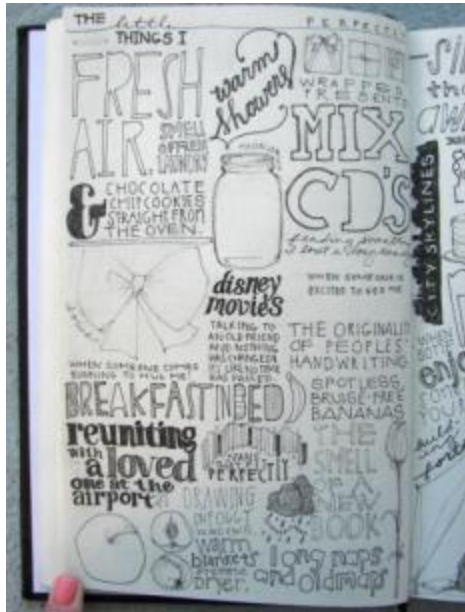 THE little
THINGS I
PERFECTLY
WRAPPED
PRESENTS
FRESH
AIR.
SMELL
OF FRESH
LAUNDRY
warm
showers
MIX
CD'S
&
CHOCOLATE
CHIP COOKIES
STRAIGHT FROM
THE OVEN.
finding something
I lost a long
disney
movies
WHEN SOMEONE IS
EXCITED TO SEE ME
TALKING TO
AN OLD FRIEND
AND NOTHING
HAS CHANGED.
IT'S LIKE NO TIME
HAS PASSED.
THE ORIGINALITY
OF PEOPLES'
HANDWRITING
WHEN SOMEONE COMES
RUNNING TO HUG ME
BREAKFAST IN BED
SPOTLESS,
BRUISE-FREE
BANANAS
reuniting
with a loved
one at the
airport
PERFECTLY
THE
SMELL
OF A
NEW
BOOK
DRAWING
ON FOGGY
WINDOWS
warm
blankets
dryer.
long naps
and old maps
CITY SKYLINES
WHEN
enjoy